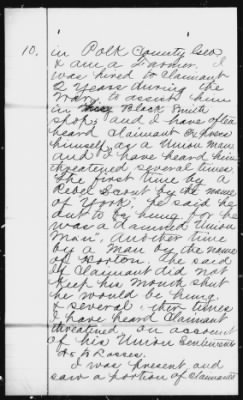 10. in Polk County Geo
& am a Farmer. I
was hired to Claimant
2 years during the
War, to assist him
in Black Smith
shop, and I have often
heard Claimant Express
himself as a Union Man
and I have heard him
threatened several times
The first time by a
Rebel Scout by the name
of York, he said he
out to be hung for he
was a damned Union
Man". Another time
by a man by the name
of Borton. The said
if Claimant did not
keep his mouth shut
he would be hung.
& several other times
I have heard Claimant
threatened, on account
of his Union Sentiments
As to Losses.
I was present, and
saw a portion of Claimants